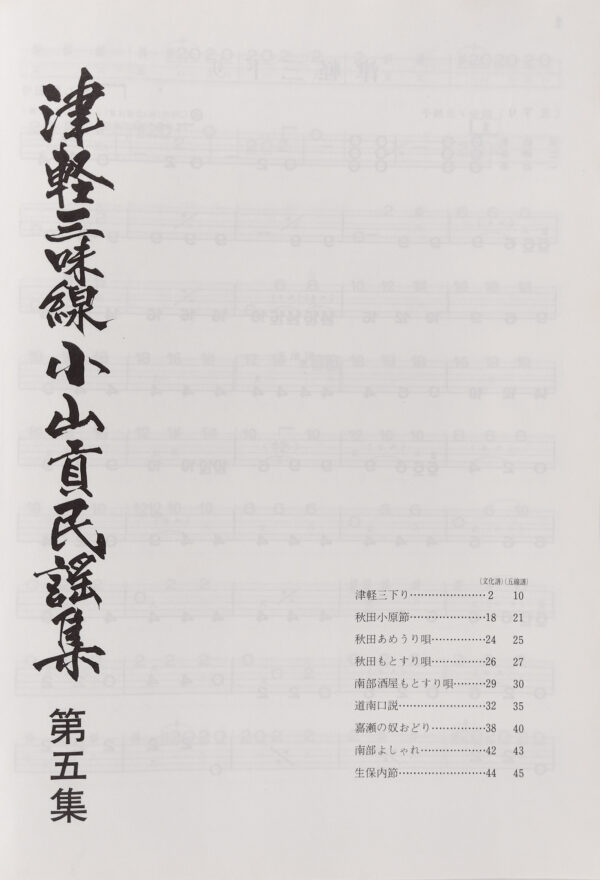 津軽三味線小山貢民謡集
第五集
(文化譜)(五線譜)
津軽三下り…………………2 10
秋田小原節…………………18 21
秋田あめうり唄……………24 25
秋田もとすり唄……………26 27
南部酒屋もとすり唄………29 30
道南口説……………………32 35
嘉瀬の奴おどり……………38 40
南部よしゃれ………………42 43
生保内節……………………44 45